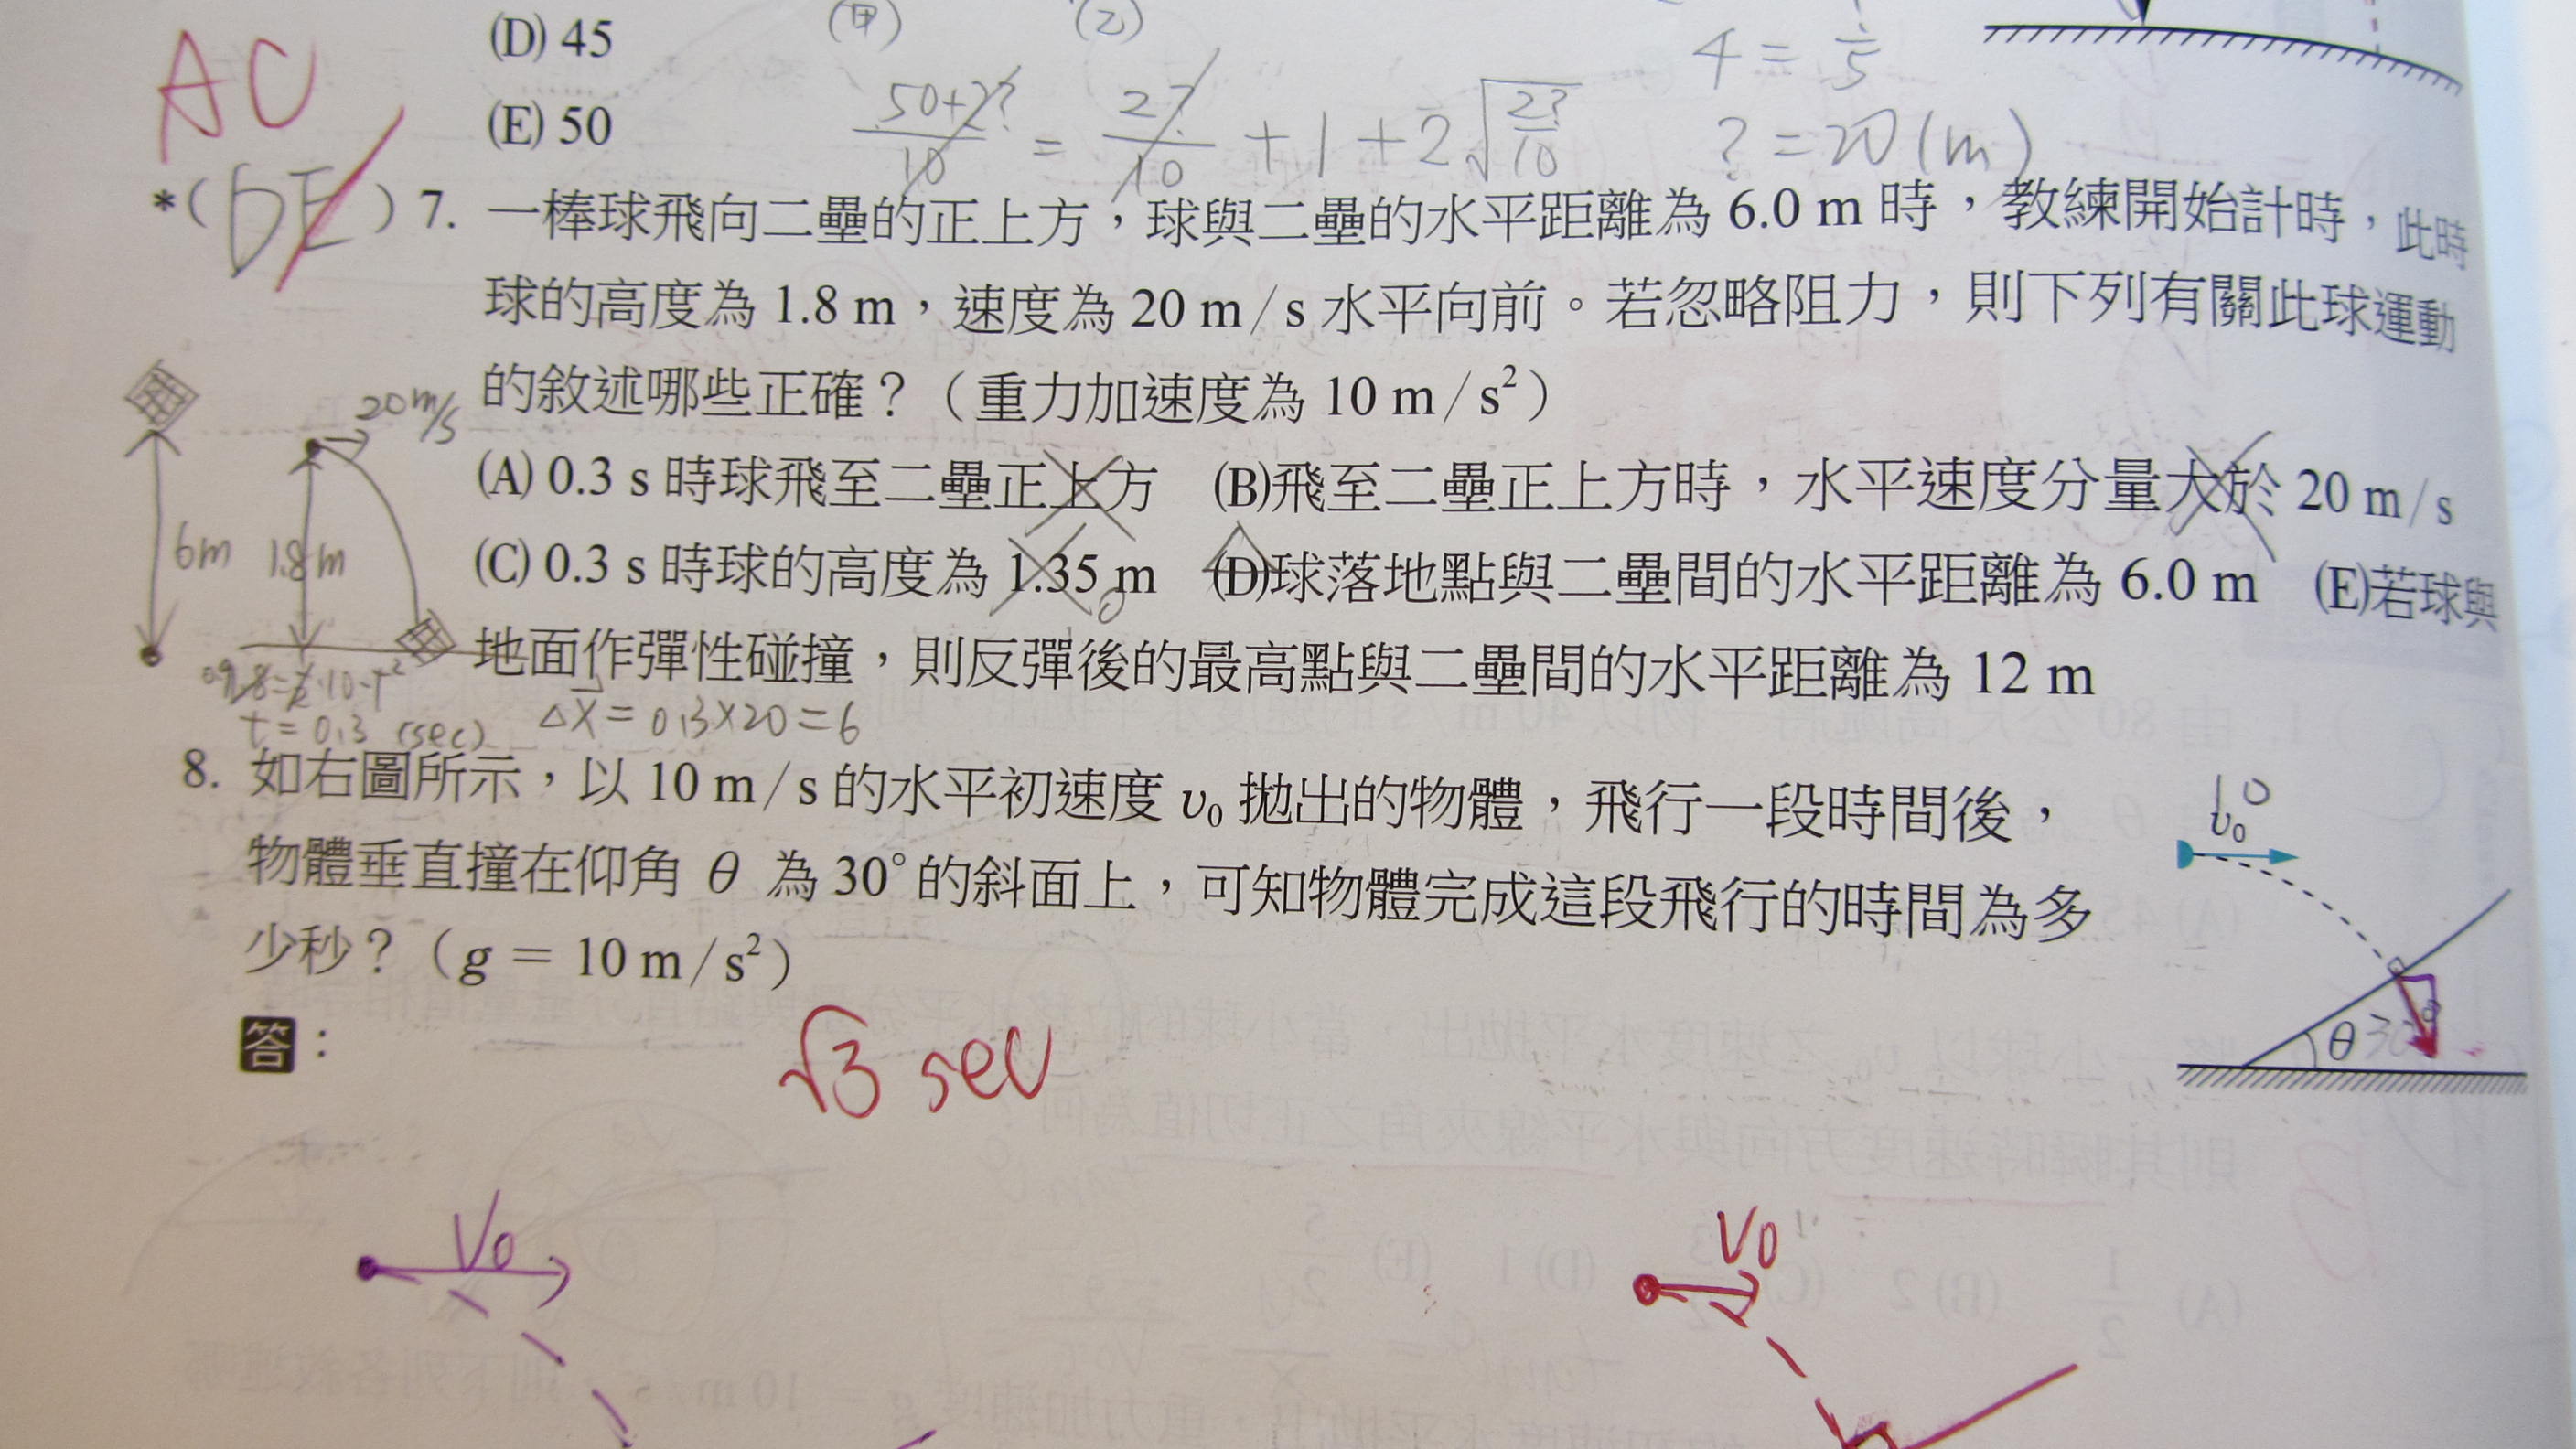 AC
(D) 45
(甲)
(乙)
4 = 1/5
(E) 50
50+2?/10 = 2?/10 + 1 + 2√2?/10
? = 20 (m)
*( DE ) 7. 一棒球飛向二壘的正上方，球與二壘的水平距離為 6.0 m 時，教練開始計時，此時
球的高度為 1.8 m，速度為 20 m/s 水平向前。若忽略阻力，則下列有關此球運動
的敘述哪些正確？（重力加速度為 10 m/s²）
20 m/s
(A) 0.3 s 時球飛至二壘正上方 (B)飛至二壘正上方時，水平速度分量大於 20 m/s
6m
1.8m
(C) 0.3 s 時球的高度為 1.35 m (D)球落地點與二壘間的水平距離為 6.0 m (E)若球與
地面作彈性碰撞，則反彈後的最高點與二壘間的水平距離為 12 m
t = 0.3 (sec)
△X = 0.3×20 = 6
8. 如右圖所示，以 10 m/s 的水平初速度 v₀ 拋出的物體，飛行一段時間後，
物體垂直撞在仰角 θ 為 30° 的斜面上，可知物體完成這段飛行的時間為多
少秒？（g = 10 m/s²）
10
v₀
θ 30°
答：
√3 sec
V₀
V₀